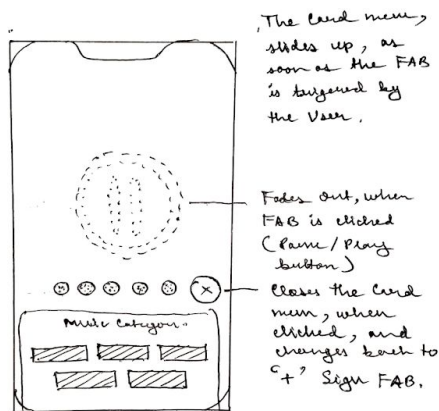 The Card menu,
slides up, as
soon as the FAB
is trigered by
the User.
Fades out, when
FAB is clicked
(Pause/Play
button)
Closes the Card
menu, when
clicked, and
changes back to
"+" Sign FAB.
Music Category